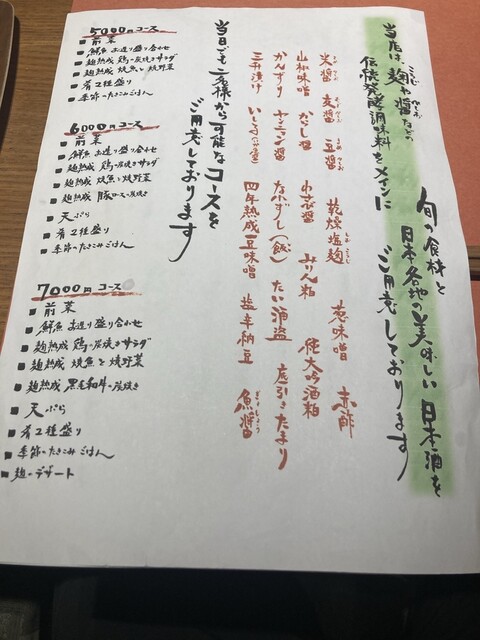 当店は、麹や醤などの
伝統発酵調味料をメインに
旬の食材と
日本各地の美味しい日本酒を
ご用意しております
米醤 麦醤 豆醤 乾燥塩麹 葱味噌 赤酢
山椒味噌 だし醤 みりん粕 純大吟醸粕
かんずり なれずし(飯) たい酒盗 底引きたまり
三升漬け いしる 四年熟成豆味噌 塩辛納豆 魚醤
当日でも一名様から可能なコースを
ご用意しております
5000円コース
■ 前菜
■ 鮮魚お造り盛り合わせ
■ 麹熟成 鶏の炭焼きサラダ
■ 麹熟成 焼魚と焼野菜
■ 肴2種盛り
■ 季節のたきこみごはん
6000円コース
■ 前菜
■ 鮮魚 お造り盛り合わせ
■ 麹熟成 鶏の炭焼きサラダ
■ 麹熟成 焼魚と焼野菜
■ 麹熟成 豚ロース炭焼き
■ 天ぷら
■ 肴2種盛り
■ 季節のたきこみごはん
7000円コース
■ 前菜
■ 鮮魚お造り盛り合わせ
■ 麹熟成 鶏の炭焼きサラダ
■ 麹熟成 焼魚と焼野菜
■ 麹熟成 黒毛和牛の炭焼き
■ 天ぷら
■ 肴2種盛り
■ 季節のたきこみごはん
■ 麹のデザート